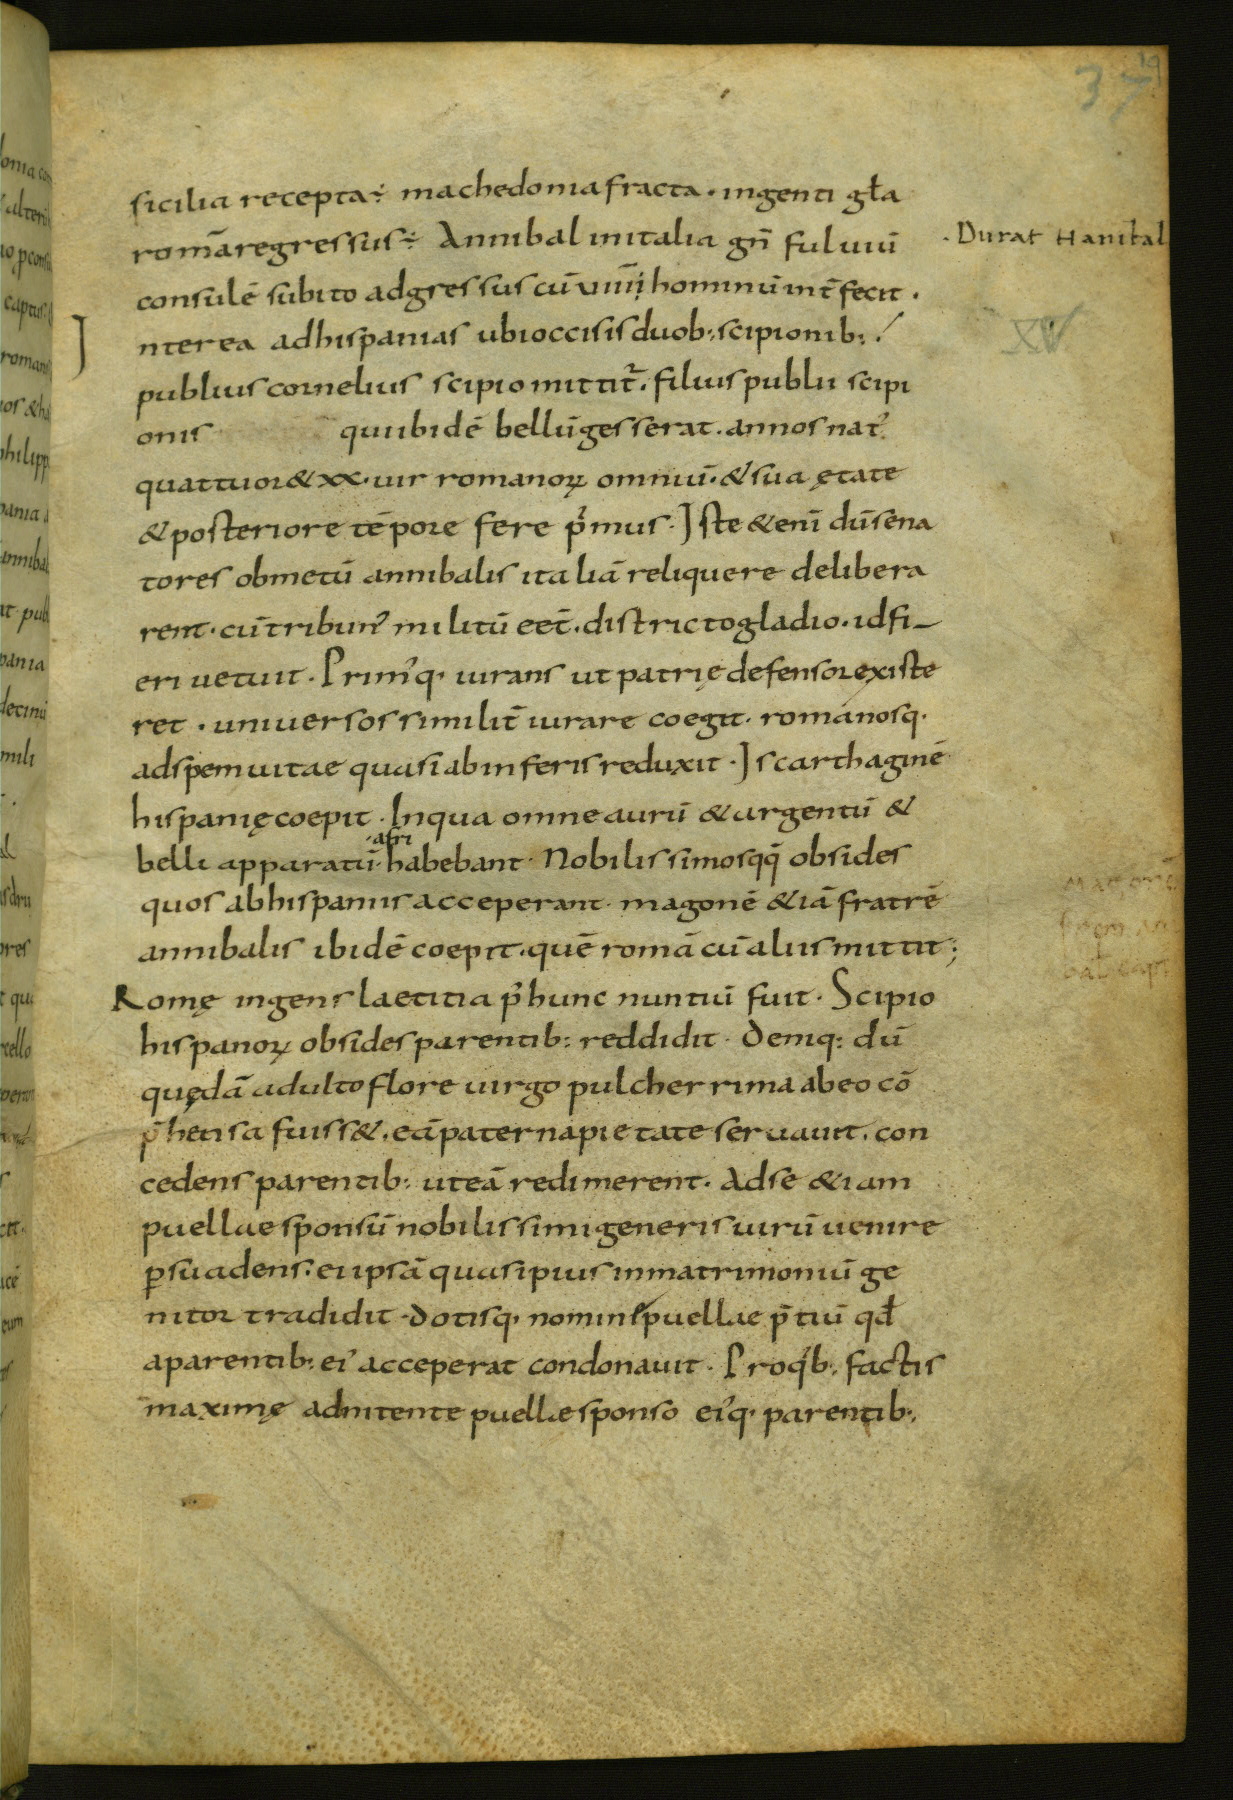 37
19
sicilia recepta⁊ machedonia fracta · ingenti gła
romā regressus⁊ Annibal in italia gn̄ fuluiū
· Durat Hanibal
consulē subito adgressus cū uiiii hominū int̄fecit .
Interea ad hispanias ubi occisis duob; scipionib; .
XV
publius cornelius scipio mittit̄. filius publii scipi
onis qui ibidē bellū gesserat . annos nat᾽
quattuor & xx . uir romanoꝝ omniū . & sua ętate
& posteriore tēpore fere p̄mus . Iste & enī dū sena
tores ob metū annibalis italiā reliquere delibera
rent . cū tribun᾽ militū eēt . districto gladio . id fi_
eri uetuit . Prim᾽q. iurans ut patrię defensor existe
ret . uniuersos similit̄ iurare coegit . romanosq.
ad spem uitae quasi ab inferis reduxit . Is carthaginē
hispanię coepit . In qua omne aurū & argentū &
afri
belli apparatū . habebant . Nobilissimosqq̄ obsides
quos ab hispanis acceperant . magonē & iā fratrē
annibalis ibidē coepit . quē romā cū aliis mittit ;
Romę ingens laetitia p̄ hunc nuntiū fuit . Scipio
hispanoꝝ obsides parentib; reddidit . Deniq; dū
quędā adulto flore uirgo pulcherrima ab eo cō
p̄hensa fuiss& . eā paterna pietate seruauit . con
cedens parentib; ut eā redimerent . Ad se & iam
puellae sponsū nobilissimi generis uirū uenire
ꝑsuadens . ei ipsā quasi pius in matrimoniū ge
nitor tradidit . dotisq. nomine puellae p̄tiū qđ
a parentib; ei᾽ acceperat condonauit . Pro qͥb; factis
maximę adnitente puellae sponso ei᾽q. parentib;